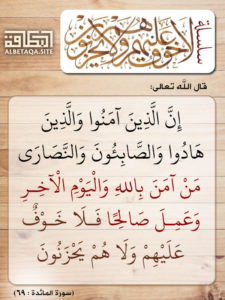 البطاقة
ALBETAQA.SITE
سلسلة
لا خوف عليهم ولا هم يحزنون
قال الله تعالى:
إِنَّ الَّذِينَ آمَنُوا وَالَّذِينَ
هَادُوا وَالصَّابِئُونَ وَالنَّصَارَى
مَنْ آمَنَ بِاللهِ وَالْيَوْمِ الْآخِرِ
وَعَمِلَ صَالِحًا فَلَا خَوْفٌ
عَلَيْهِمْ وَلَا هُمْ يَحْزَنُونَ
(سورة المائدة : ٦٩)